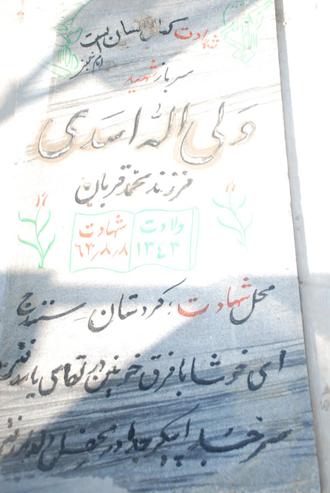 شهادت کمال انسان است
امام خمینی
سرباز شهید
ولی اله اسدی
فرزند محمد قربان
ولادت
۱۳۴۳
شهادت
۶۳٫۸٫۸
محل شهادت: کردستان سنندج
ای خوشا با فرق خونین در لقای یار رفتن
سر جدا پیکر جدا در محفل دلدار رفتن